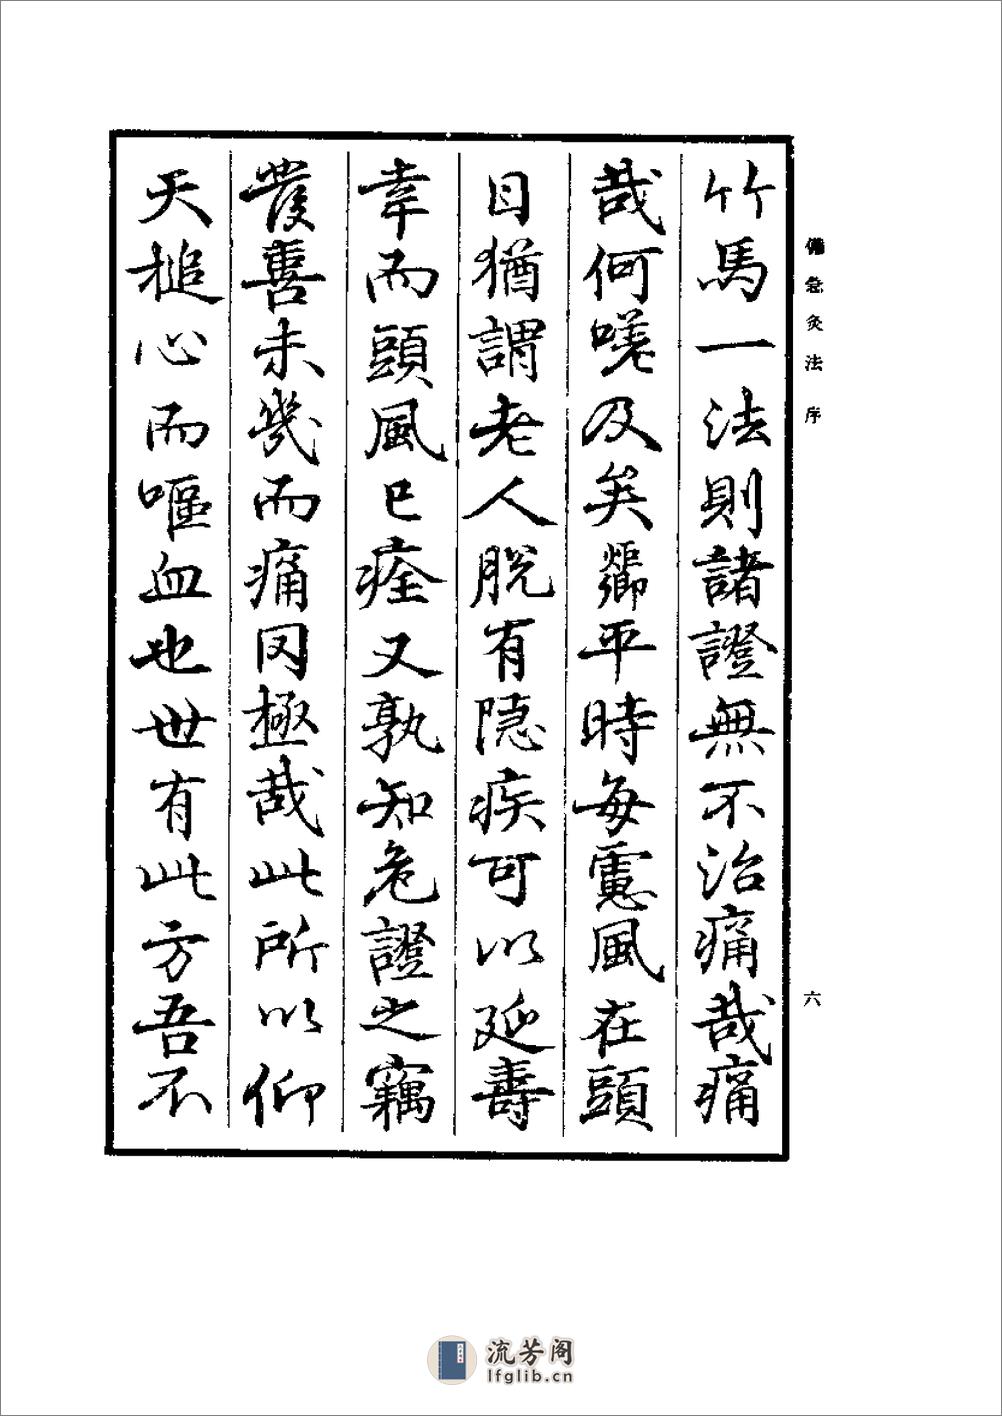 備急灸法 序
六
竹馬一法則諸證無不治痛哉痛
哉何嗟及矣㷼平時每慮風在頭
目猶謂老人脫有隱疾可以延壽
幸而頭風已痊又孰知危證之竊
發善未幾而痛罔極哉此所以仰
天槌心而嘔血也世有此方吾不
流芳阁
lfglib.cn